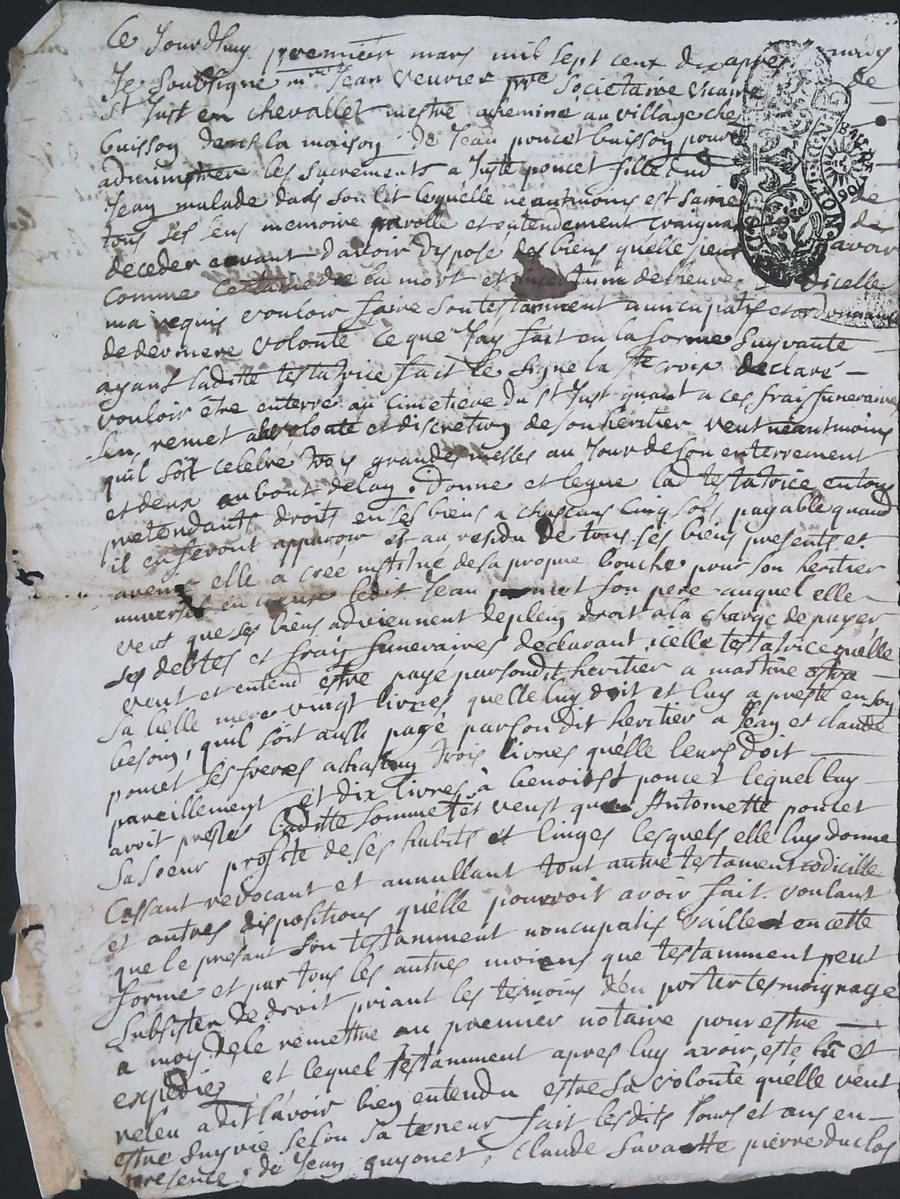 Ce Jourdhuy premier mars mil sept cent dix apres midy
Je soubsigne mre Jean veurier pre societaire vicaire de
St Just en chevallet mestre achemine au village che
buisson dans la maison de Jean poncet buisson pour
administrer les sacrements a Juste poncet fille aud
Jean malade dads son lit lequelle neantmoins est saine de
tous ses sens memoire parolle et entendement craignant de
deceder avant davoir dispose des biens quelle peut avoir
comme certaine de la mort et incertaine de lheure dicelle
ma requis vouloir faire son testamment nuncupatif et ordonnance
de derniere volonte ce que Jay fait en la forme suyvante
ayant laditte testatrice fait le signe la ste croix declare
vouloir être enterré au cimetiere du st Just quant a ces frais funeraires
sen remet a la volonte et discretion de son heritier veut neantmoins
quil soit celebre trois grandes messes au Jour de son enterrement
et deux au bout de lan. Donne et legue lad testatrice en tous
pretendants droits en ses biens a chascuns cinq sols payable quand
il en feront apparoir et au residu de tous ses biens presents et
avenir elle a cree institué de sa propre bouche pour son heritier
universel ledit Jean poncet son pere auquel elle
veut que ses biens adviennent de plein droit a la charge de payer
ses debtes et frais funeraires declarant icelle testatrice qu'elle
veut et entend estre payé par sondit heritier a martine
sa belle mere vingt livres quelle luy doit et luy a presté en son
besoin, quil soit aussi payé par son dit heritier a Jean et claude
poncet ses freres a chascun trois livres qu'elle leurs doit
pareillement et dix livres à benoist poncet lequel luy
avoit prestes laditte somme et veust que Antoinette poncet
sa soeur profite de ses habits et linges lesquels elle luy donne
Cassant revocant et annullant tout autre testament codicille
et autres dispositions qu'elle pourroit avoir fait. voulant
que le présant son testamment noncupatif vaille en cette
forme et par tous les autres moiens que testamment peut
subsister de droit priant les temoins d'en porter tesmoignage
a moy de le remettre au premier notaire pour estre
expedié, et lequel testamment apres luy avoir esté lû et
releu a dit l'avoir bien entendu estre sa volonté qu'elle veut
estre suyvie selon sa teneur fait lesdits Jours et ans en
presence, de Jean guyonet, claude pierre duclos